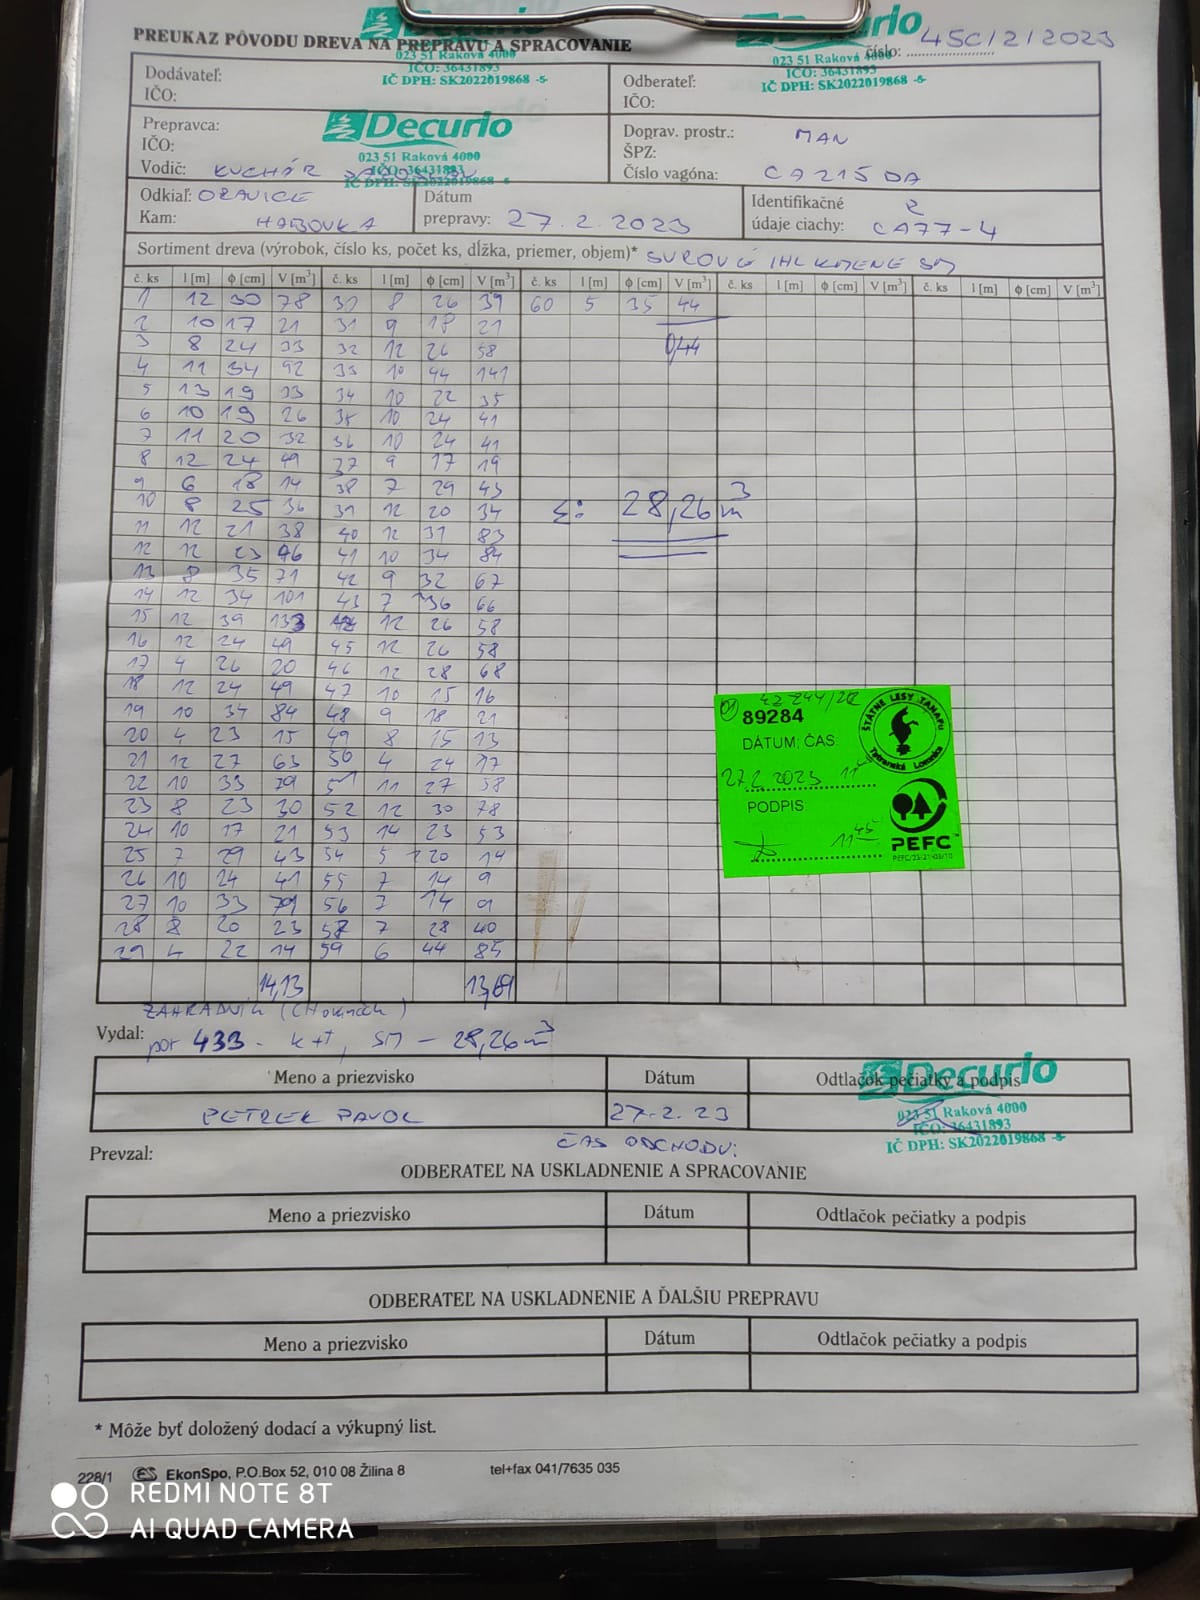 Decurio
Decurio
PREUKAZ PÔVODU DREVA NA PREPRAVU A SPRACOVANIE
číslo: 45C/2/2023
023 51 Raková 4000
IČO: 36431893
IČ DPH: SK2022019868 -5-
023 51 Raková 4000
IČO: 36431893
IČ DPH: SK2022019868 -5-
Dodávateľ:
IČO:
Odberateľ:
IČO:
Prepravca:
IČO:
Vodič: KUCHÁR
Decurio
023 51 Raková 4000
IČO: 36431893
IČ DPH: SK2022019868 -5-
Doprav. prostr.: MAN
ŠPZ:
Číslo vagóna: CA215DA
Odkiaľ: ORAVICE
Kam: HABOVKA
Dátum
prepravy: 27.2.2023
Identifikačné
údaje ciachy: CA77-4
Sortiment dreva (výrobok, číslo ks, počet ks, dĺžka, priemer, objem)* SUROVÉ IHL KMENE SM
č. ks l [m] ϕ [cm] V [m³] č. ks l [m] ϕ [cm] V [m³] č. ks l [m] ϕ [cm] V [m³] č. ks l [m] ϕ [cm] V [m³] č. ks l [m] ϕ [cm] V [m³]
1 12 30 78 31 8 26 39 60 5 35 44
2 10 17 21 31 9 18 21
3 8 24 33 32 12 26 58 0,44
4 11 34 92 33 10 44 141
5 13 19 33 34 10 22 35
6 10 19 26 35 10 24 41
7 11 20 32 36 10 24 41
8 12 24 49 37 9 17 19
9 6 18 14 38 7 29 43
10 8 25 36 39 12 20 34 Σ: 28,26 m³
11 12 21 38 40 12 31 83
12 12 23 46 41 10 34 84
13 8 35 71 42 9 32 67
14 12 34 101 43 7 36 66
15 12 39 133 44 12 26 58
16 12 24 49 45 12 26 58
17 4 26 20 46 12 28 68
18 12 24 49 47 10 15 16
19 10 34 84 48 9 18 21
20 4 23 15 49 8 15 13
21 12 27 63 50 4 24 17
22 10 33 79 51 11 27 58
23 8 23 30 52 12 30 78
24 10 17 21 53 14 23 53
25 7 29 43 54 5 20 14
26 10 24 41 55 7 14 9
27 10 33 79 56 7 14 9
28 8 20 23 58 7 28 40
29 4 22 14 59 6 44 85
14,13 13,69
89284
DÁTUM, ČAS
27.2.2023
PODPIS
11 45
ŠTÁTNE LESY TANAPU
Tatranská Lomnica
PEFC™
PEFC/23-21-03/10
ZAHRADNÍK
Vydal: por 433 - k+t, SM - 28,26 m³
Meno a priezvisko Dátum Odtlačok pečiatky a podpis
PETREK PAVOL 27.2.23
Decurio
023 51 Raková 4000
IČO: 36431893
IČ DPH: SK2022019868 -5-
ČAS ODCHODU:
Prevzal:
ODBERATEĽ NA USKLADNENIE A SPRACOVANIE
Meno a priezvisko Dátum Odtlačok pečiatky a podpis
ODBERATEĽ NA USKLADNENIE A ĎALŠIU PREPRAVU
Meno a priezvisko Dátum Odtlačok pečiatky a podpis
* Môže byť doložený dodací a výkupný list.
228/1 ES EkonSpo, P.O.Box 52, 010 08 Žilina 8 tel+fax 041/7635 035
REDMI NOTE 8T
AI QUAD CAMERA